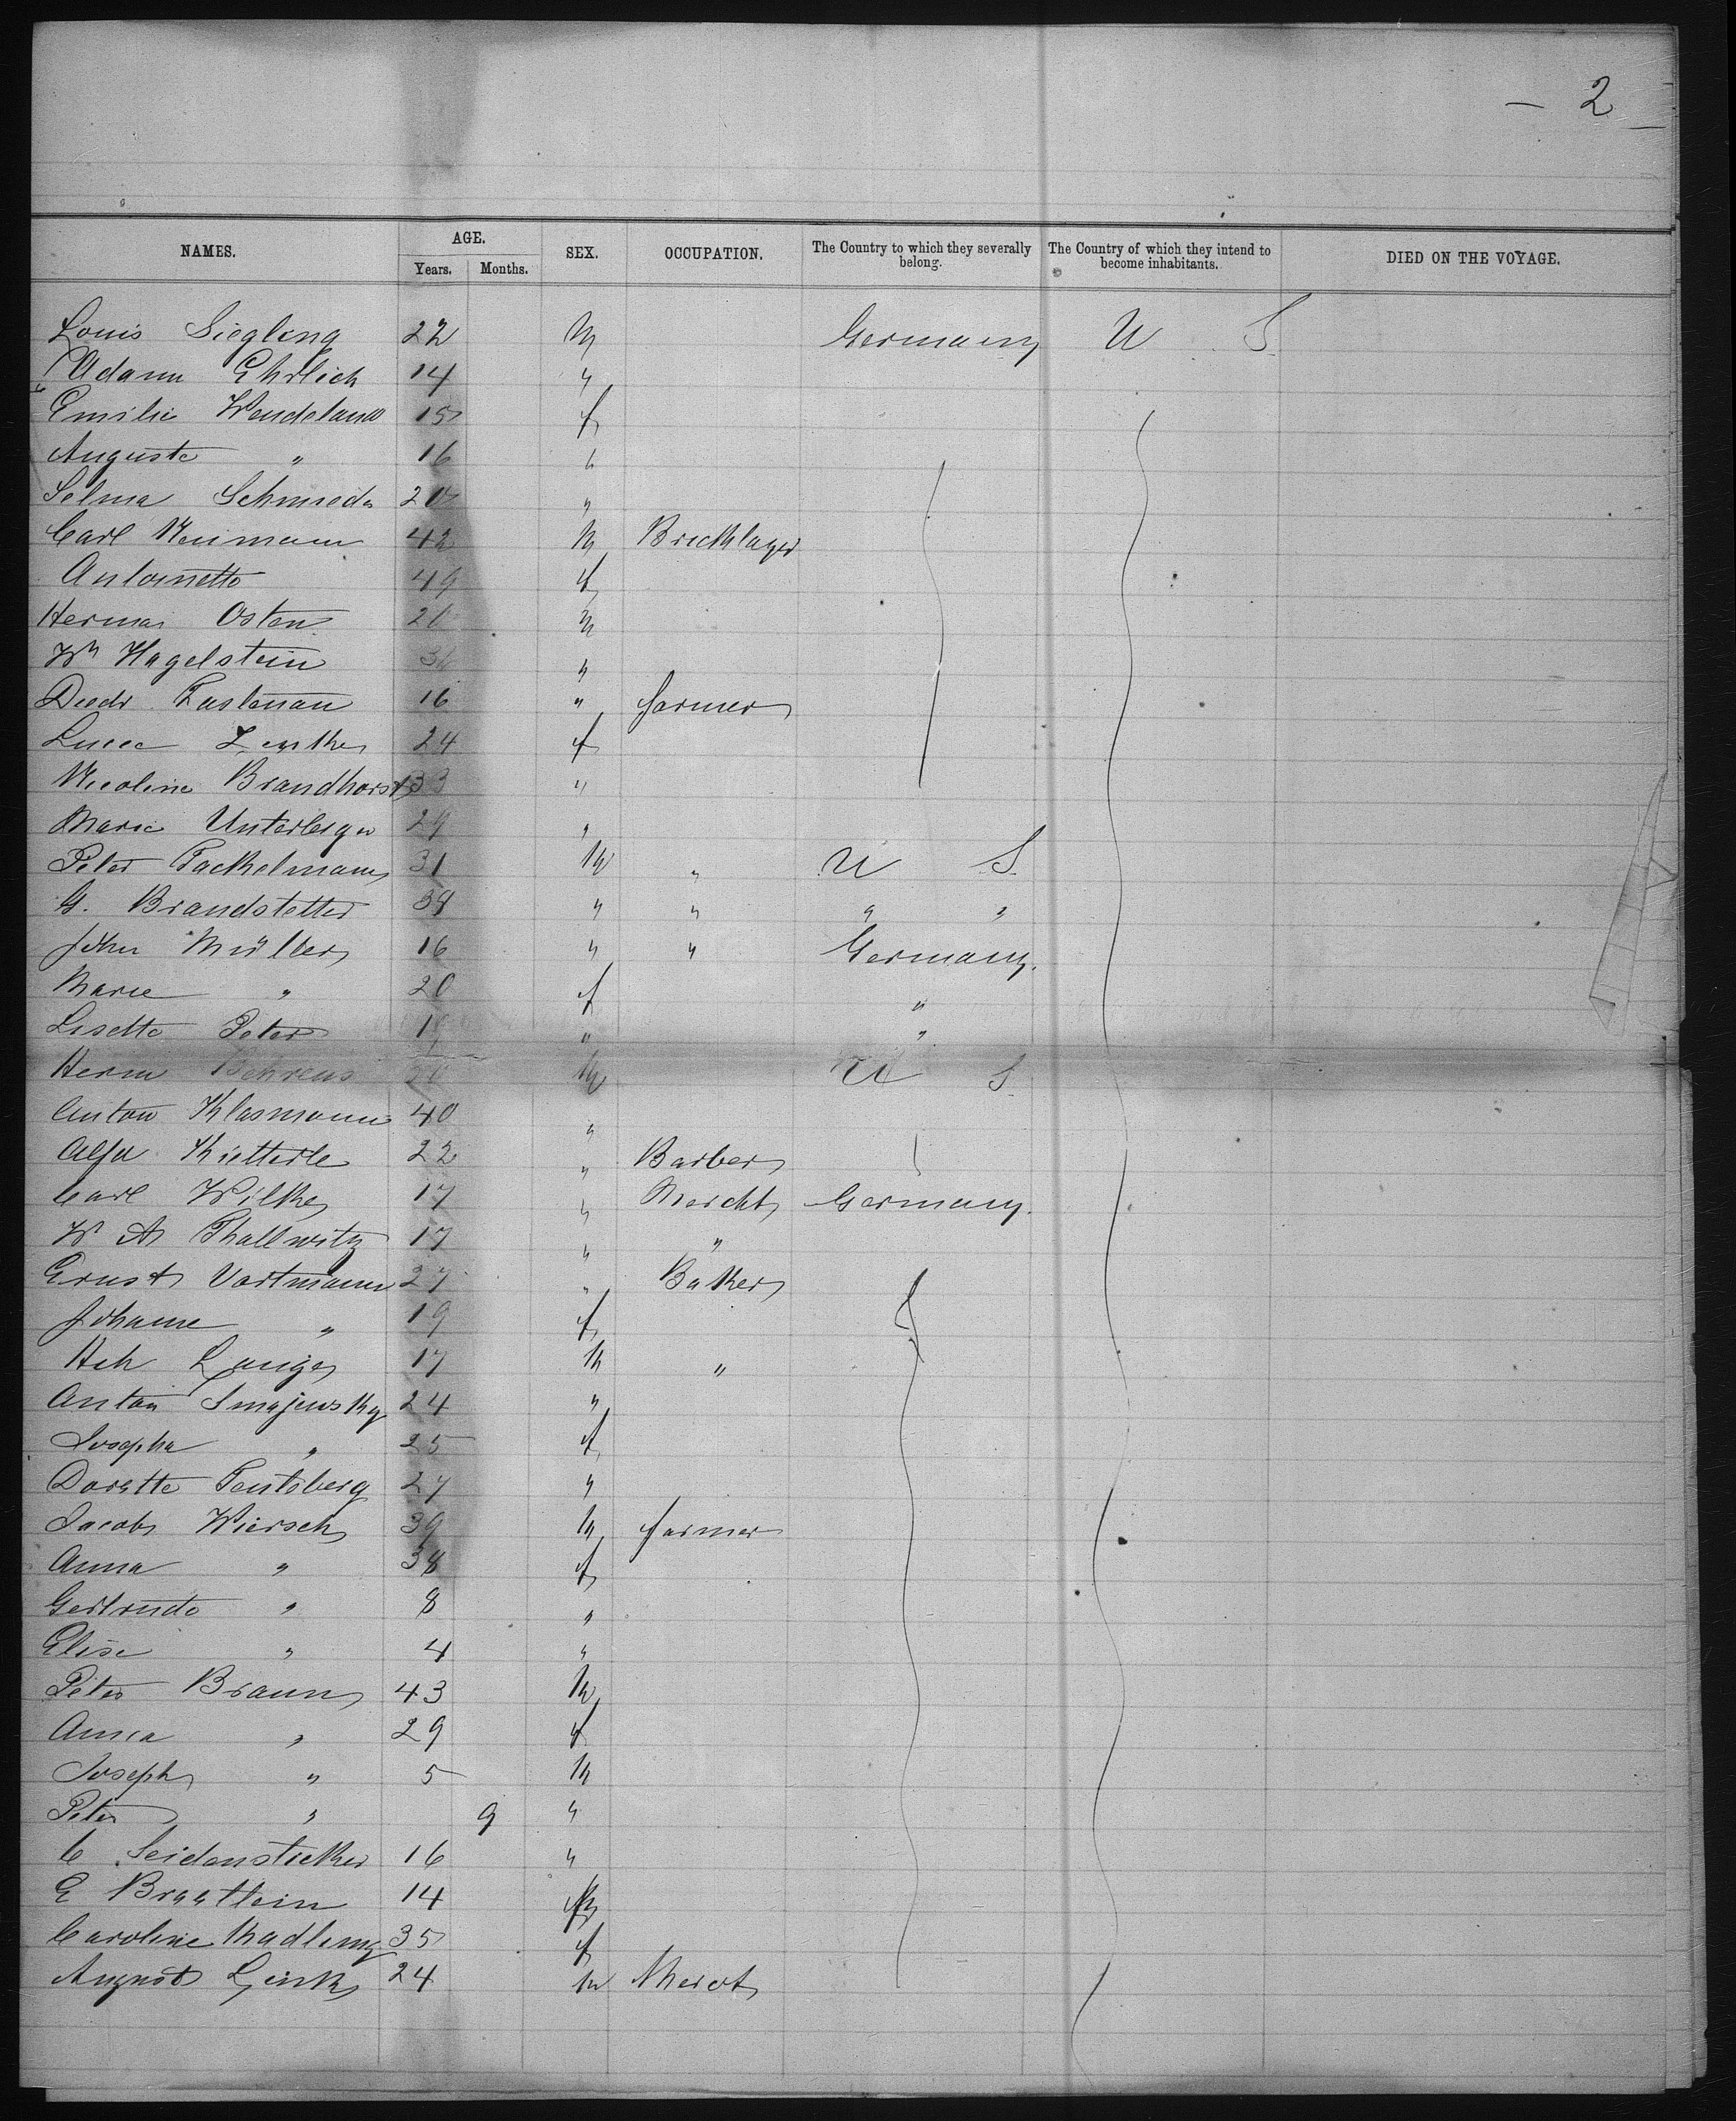 — 2 —
NAMES. AGE. SEX. OCCUPATION. The Country to which they severally belong. The Country of which they intend to become inhabitants. DIED ON THE VOYAGE.
Years. Months.
Louis Siegling 22 M Germany U S
Adam Ehrlich 14 "
Emilie Wendeland 15 f
Auguste " 16 "
Selma Schmieda 20 "
Carl Neumann 42 M Bricklayer
Antoinette 49 f
Herman Osten 20 M
Wm Hagelstein 36 "
Diedr 16 " farmer
24 f
Nicoline Brandhorst 33 "
Marie Unterberger 29 "
Peter Fackelmann 31 M " U S
G. Brandstetter 39 " " " "
John Müller 16 " " Germany.
Marie " 20 f "
Lisette Peter "  "
Herm Behrens M U S
Anton Klasmann 40 "
Kietterle 22 " Barber
Carl Wilke 17 " Mercht Germany.
W A Thallwitz 17 " "
Ernst Vortmann 27 " Baker
Johanne " 19 f
Hch Lange 17 M "
Anton Smajewsky 24 "
Josepha " 25 f
Dorette Pentsberg 27 "
Jacob Wiersch 39 M farmer
Anna " 38 f
Gertrude " 8 "
Elise " 4 "
Peter Braun 43 M
Anna " 29 f
Joseph " 5 M
Peter " 9 "
C Seidensticker 16 "
E 14
Caroline Kadling 35 f
August 24 M Merct